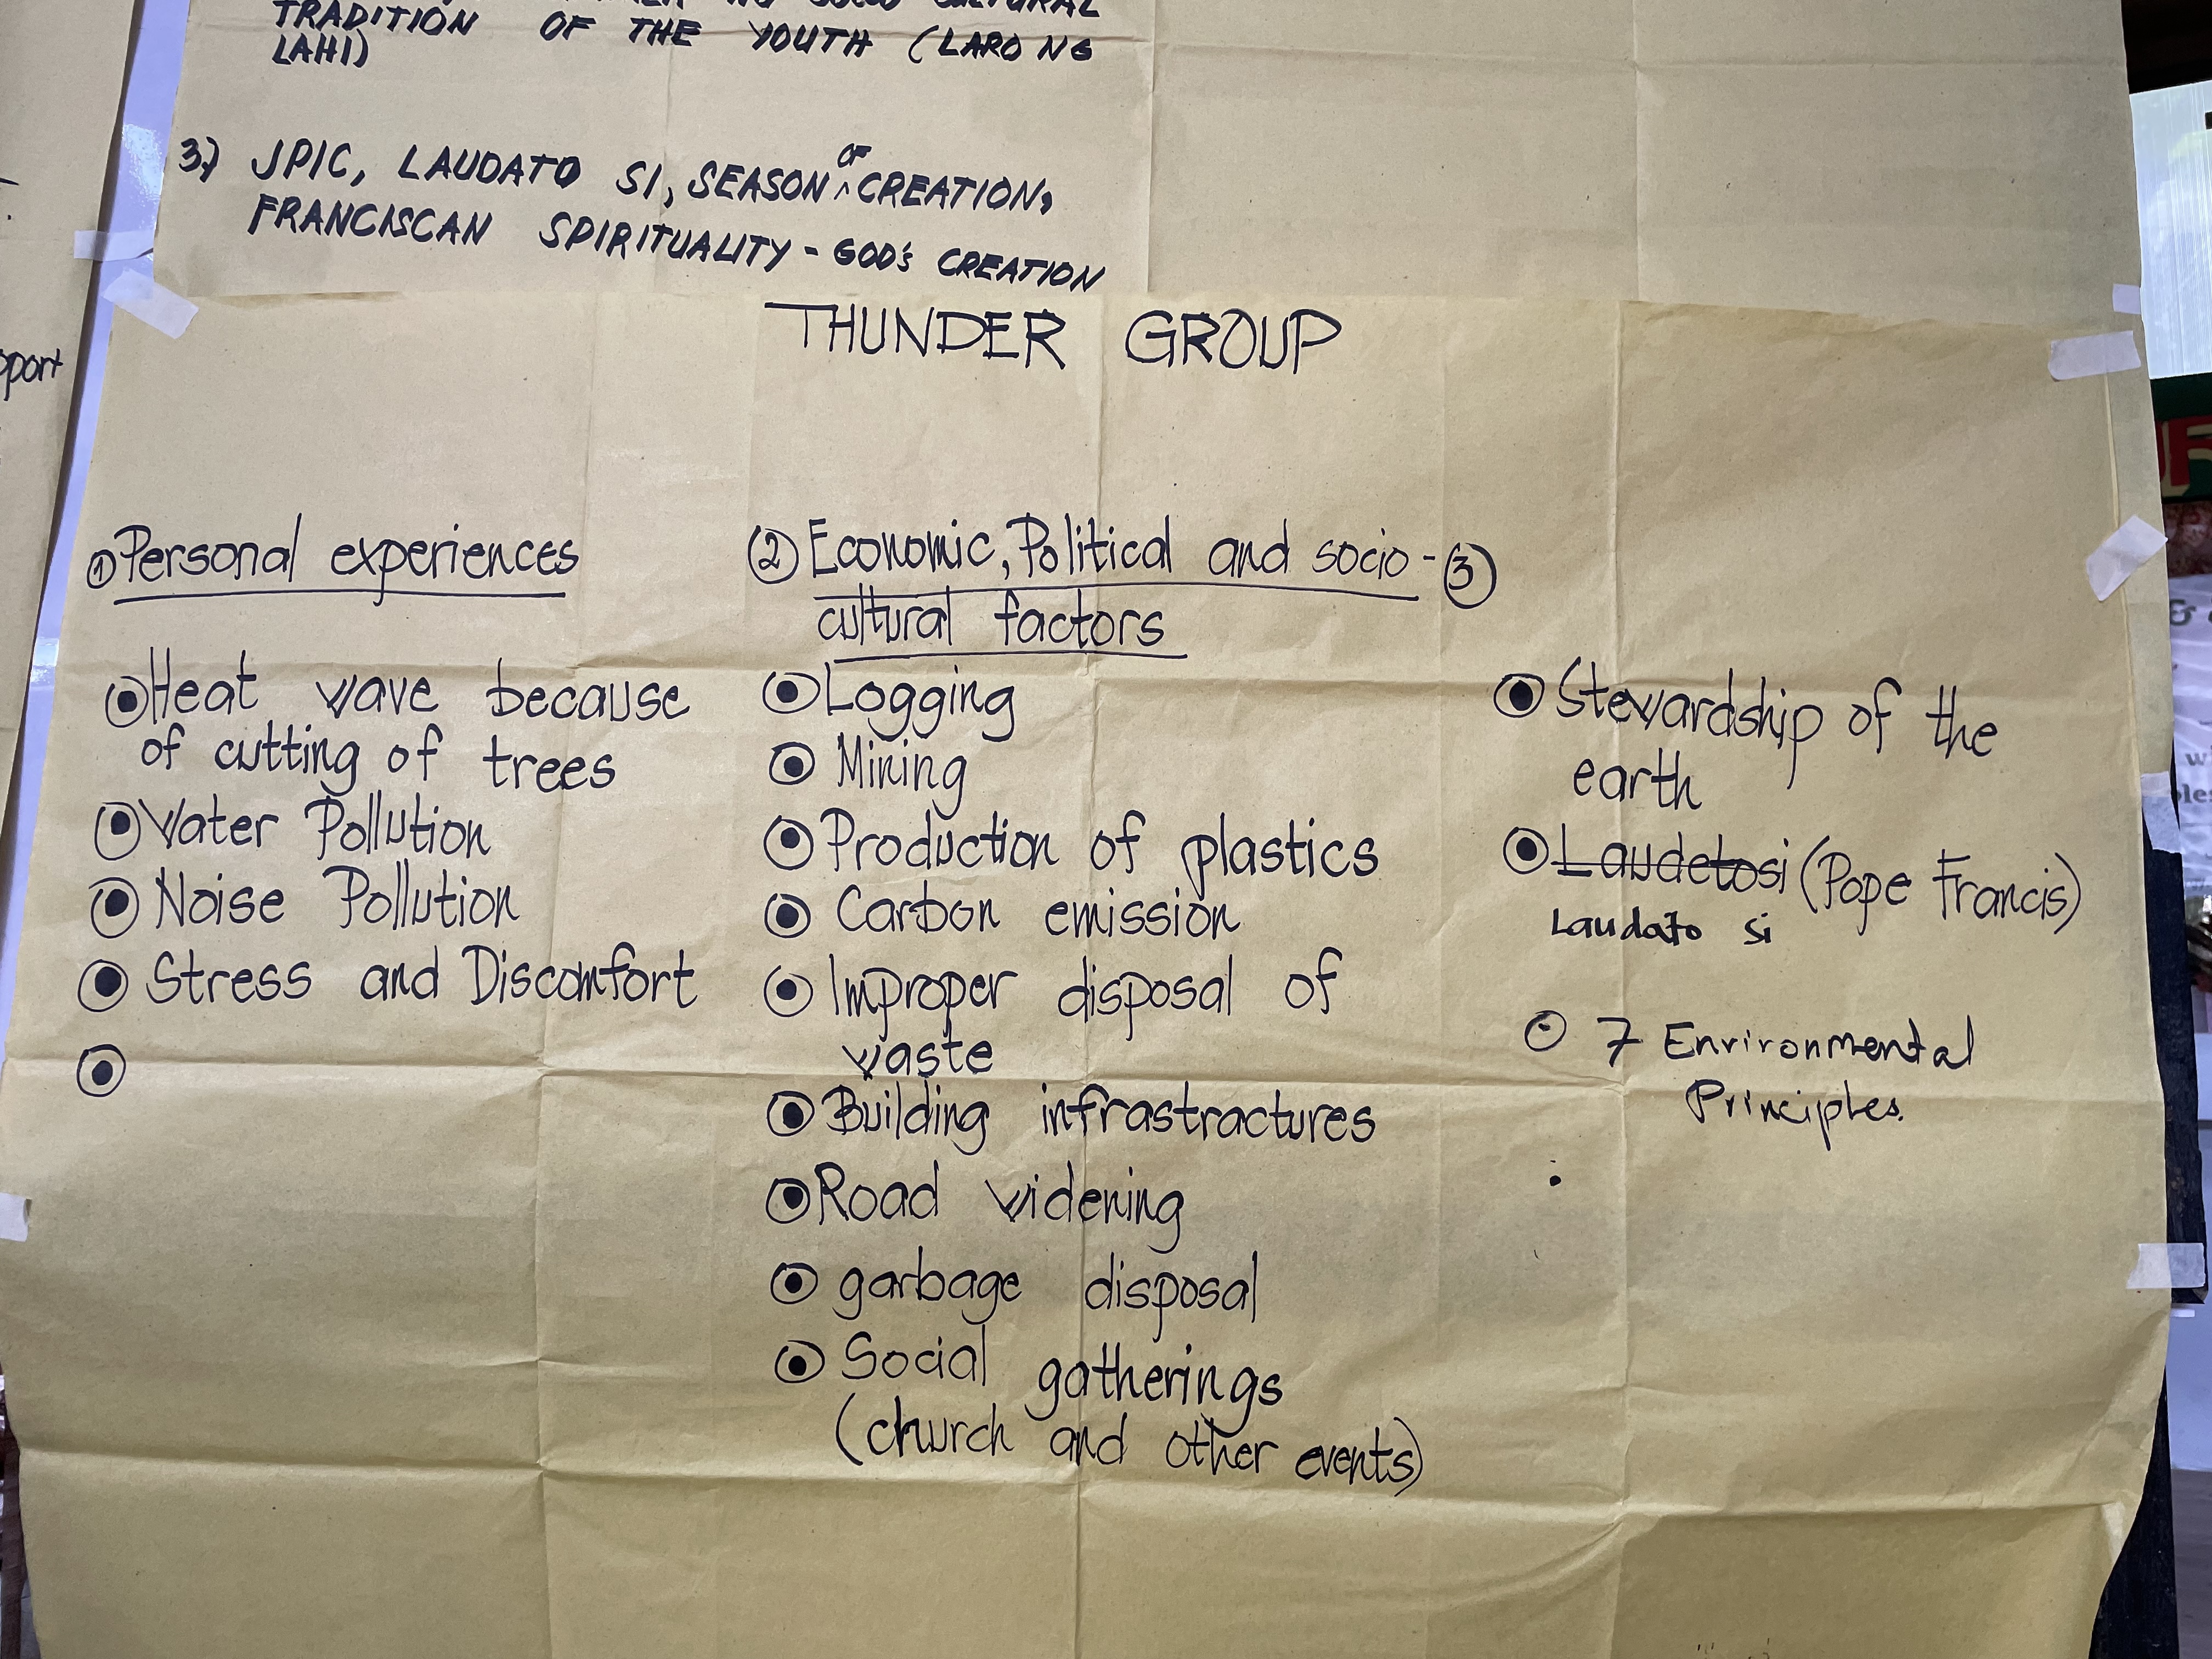 SOCIO CULTURAL
TRADITION OF THE YOUTH (LARO NG
LAHI)
3.) JPIC, LAUDATO SI, SEASON OF CREATION,
FRANCISCAN SPIRITUALITY - GOD'S CREATION
pport
THUNDER GROUP
① Personal experiences
Heat wave because
of cutting of trees
Water Pollution
Noise Pollution
Stress and Discomfort
② Economic, Political and socio-
cultural factors
Logging
Mining
Production of plastics
Carbon emission
Improper disposal of
waste
Building infrastractures
Road widening
garbage disposal
Social gatherings
(church and other events)
③
Stewardship of the
earth
Laudetosi (Pope Francis)
Laudato si
7 Environmental
Principles.